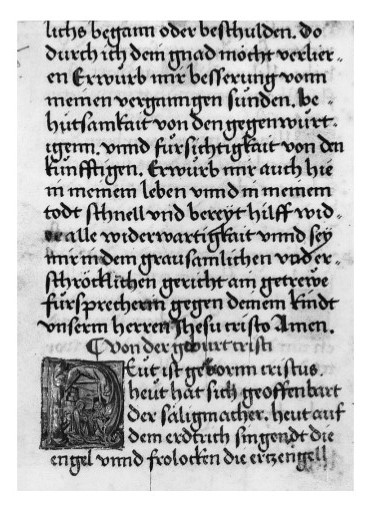 lichs begann oder beschulden. do
durch ich dein gnad möcht verlier-
en Erwürb mir besserung vonn
meinen vergangnen sünden. be-
hütsamkait von den gegenwürt-
igenn. vnnd fürsichtigkait von den
künfftigen. Erwürb mir auch hie
in meinem leben vnnd in meinem
todt schnell vnd bereyt hilff wid-
alle widerwartigkait vnnd sey
mir in dem grausamlichen vnd er-
schröcklichen gericht ain getrewe
fürsprecherin gegen deinem kindt
vnserm herren Jhesu cristo Amen.
von der geburt cristi
Eut ist geborn cristus
heut hat sich geoffenbart
der säligmacher. heut auf
dem erdtrich singendt die
engel vnnd frolocken die ertzengell